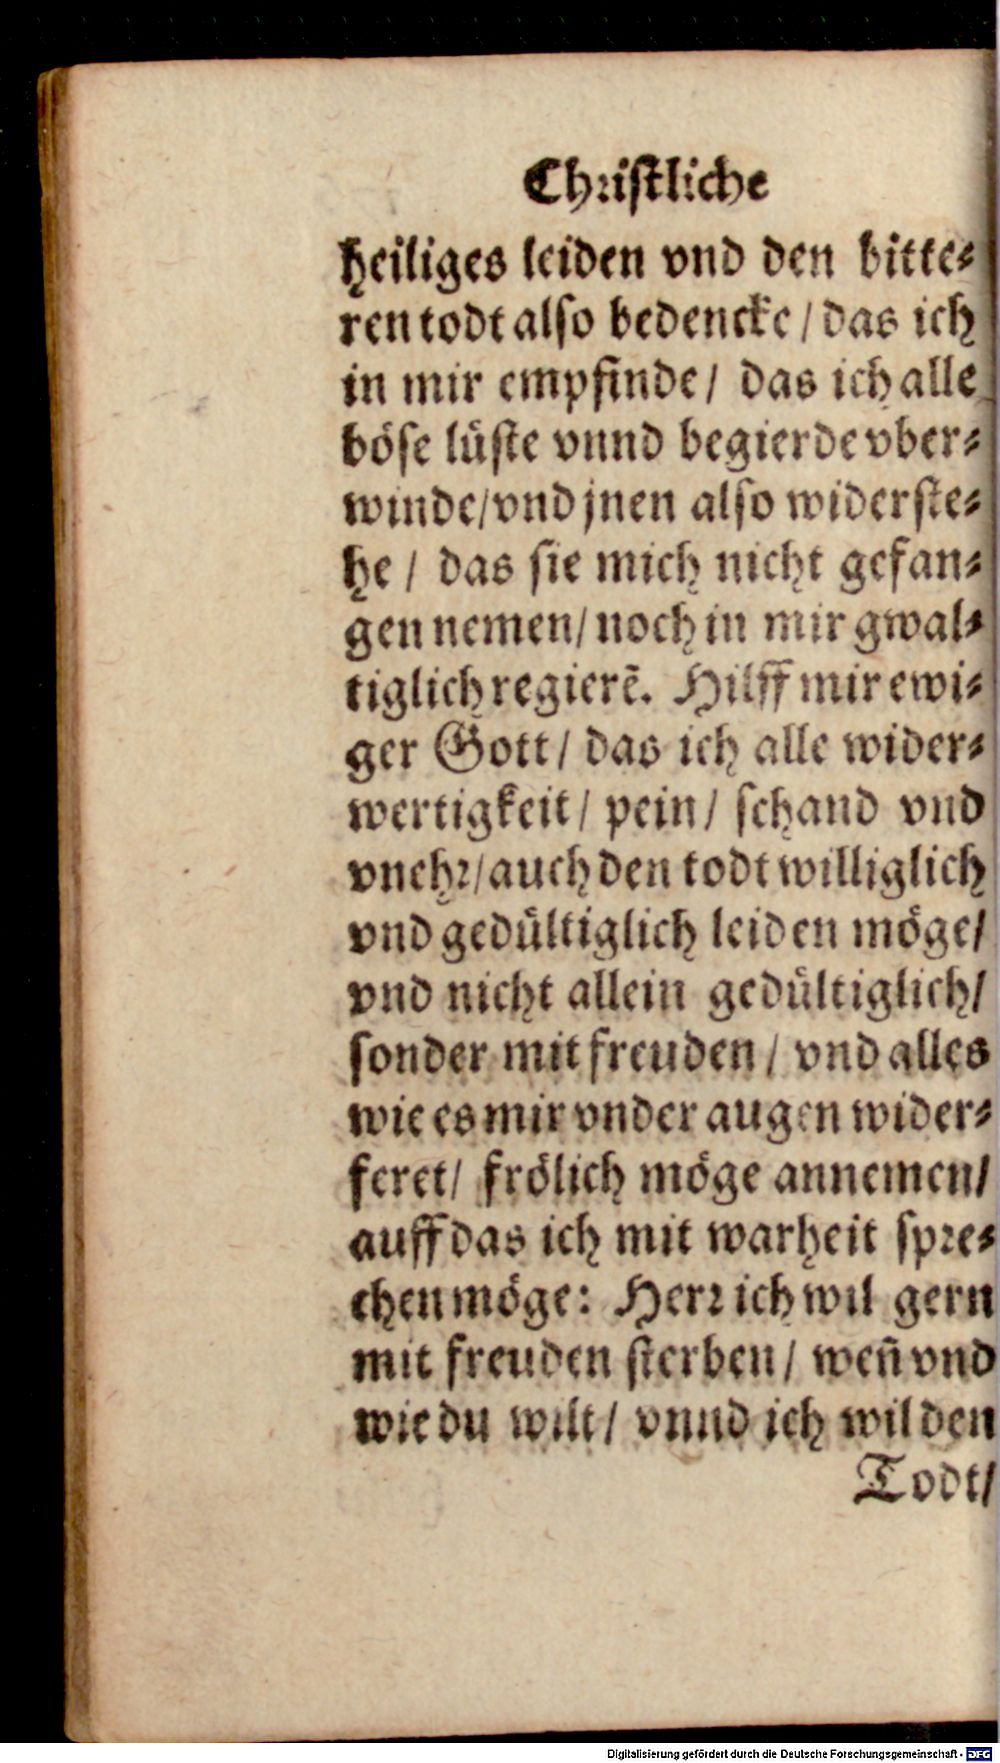 Christliche
heiliges leiden vnd den bitte⸗
ren todt also bedencke / das ich
in mir empfinde / das ich alle
böse lüste vnnd begierde vber⸗
winde / vnd jnen also widerste⸗
he / das sie mich nicht gefan⸗
gen nemen / noch in mir gwal⸗
tiglich regierē. Hilff mir ewi⸗
ger Gott / das ich alle wider⸗
wertigkeit / pein / schand vnd
vnehr / auch den todt williglich
vnd gedültiglich leiden möge /
vnd nicht allein gedültiglich /
sonder mit freuden / vnd alles
wie es mir vnder augen wider⸗
feret / frölich möge annemen /
auff das ich mit warheit spre⸗
chen möge: Herr ich wil gern
mit freuden sterben / wen̄ vnd
wie du wilt / vnnd ich wil den
Todt /
Digitalisierung gefördert durch die Deutsche Forschungsgemeinschaft - DFG